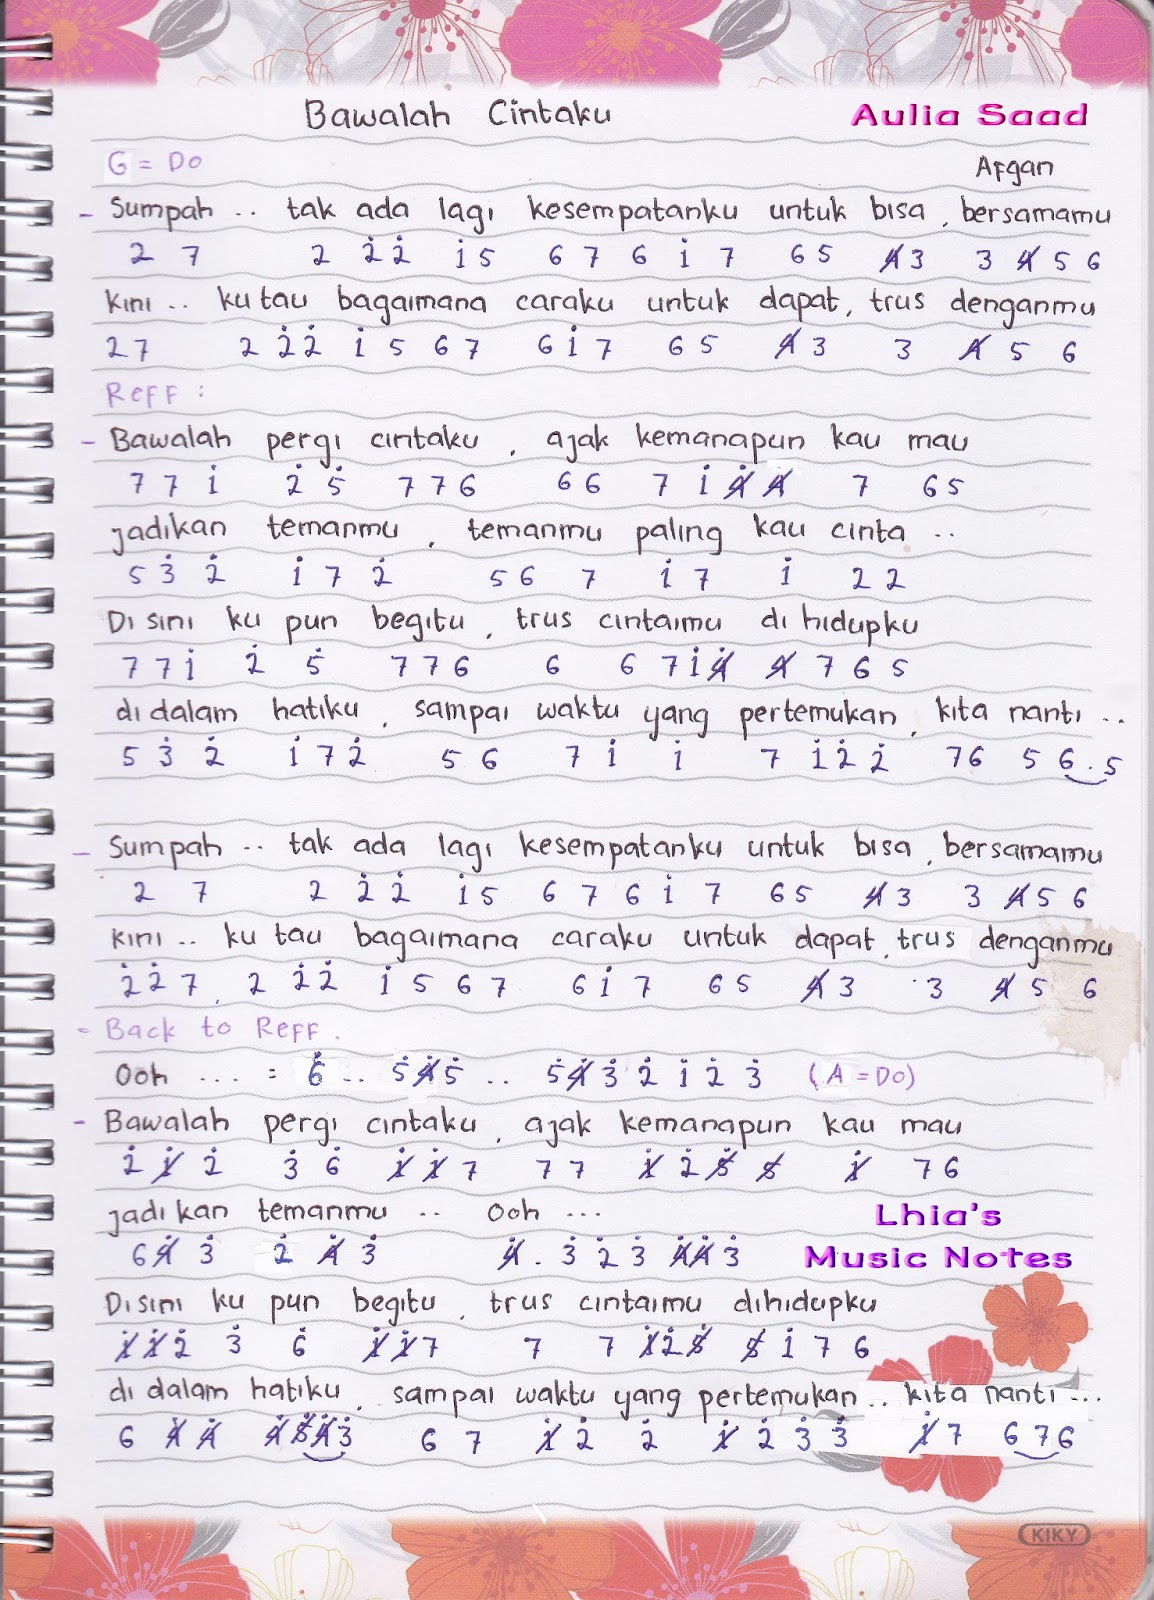 Bawalah Cintaku Aulia Saad
G = Do Afgan
- Sumpah .. tak ada lagi kesempatanku untuk bisa , bersamamu
2 7 2 2̇ 2̇ 1̇ 5 6 7 6 1̇ 7 6 5 4̸ 3 3 4̸ 5 6
Kini .. ku tau bagaimana caraku untuk dapat, trus denganmu
2 7 2 2̇ 2̇ 1̇ 5 6 7 6 1̇ 7 6 5 4̸ 3 3 4̸ 5 6
Reff :
- Bawalah pergi cintaku , ajak kemanapun kau mau
7 7 1̇ 2̇ 5̇ 7 7 6 6 6 7 1̇ 4̸ 4̸ 7 6 5
jadikan temanmu , temanmu paling kau cinta ..
5 3̇ 2̇ 1̇ 7 2̇ 5 6 7 1̇ 7 1̇ 2 2
Disini ku pun begitu , trus cintaimu di hidupku
7 7 1̇ 2̇ 5̇ 7 7 6 6 6 7 1̇ 4̸ 4̸ 7 6 5
di dalam hatiku , sampai waktu yang pertemukan, kita nanti ..
5 3̇ 2̇ 1̇ 7 2̇ 5 6 7 1̇ 1̇ 7 1̇ 2̇ 2̇ 7 6 5 6 . 5
- Sumpah .. tak ada lagi kesempatanku untuk bisa , bersamamu
2 7 2 2̇ 2̇ 1̇ 5 6 7 6 1̇ 7 6 5 4̸ 3 3 4̸ 5 6
Kini .. ku tau bagaimana caraku untuk dapat, trus denganmu
2̇ 2̇ 7 , 2 2̇ 2̇ 1̇ 5 6 7 6 1̇ 7 6 5 4̸ 3 3 4̸ 5 6
- Back to Reff .
Ooh .... = 6̇ .. 5̇ 4̸̇ 5̇ .. 5̇ 4̸̇ 3̇ 2̇ 1̇ 2̇ 3̇ (A = Do)
- Bawalah pergi cintaku , ajak kemanapun kau mau
2̇ 1̸̇ 2̇ 3̇ 6̇ 1̸̇ 1̸̇ 7 7 7 1̸̇ 2̇ 5̸̇ 5̸ 1̸̇ 7 6
jadikan temanmu .. Ooh ... Lhia's
6 4̸̇ 3̇ 2̇ 4̸̇ 3̇ 4̸̇ . 3̇ 2̇ 3̇ 4̸̇ 4̸̇ 3̇ Music Notes
Disini ku pun begitu , trus cintaimu dihidupku
1̸̇ 1̸̇ 2̇ 3̇ 6̇ 1̸̇ 1̸̇ 7 7 7 1̸̇ 2̇ 5̸̇ 5̸ 1̇ 7 6
di dalam hatiku , sampai waktu yang pertemukan .. kita nanti ...
6 4̸̇ 4̸̇ 4̸̇ 5̸̇ 4̸̇ 3̇ 6 7 1̸̇ 2̇ 2̇ 1̸̇ 2̇ 3̇ 3̇ 1̸̇ 7 6 7 6
KIKY